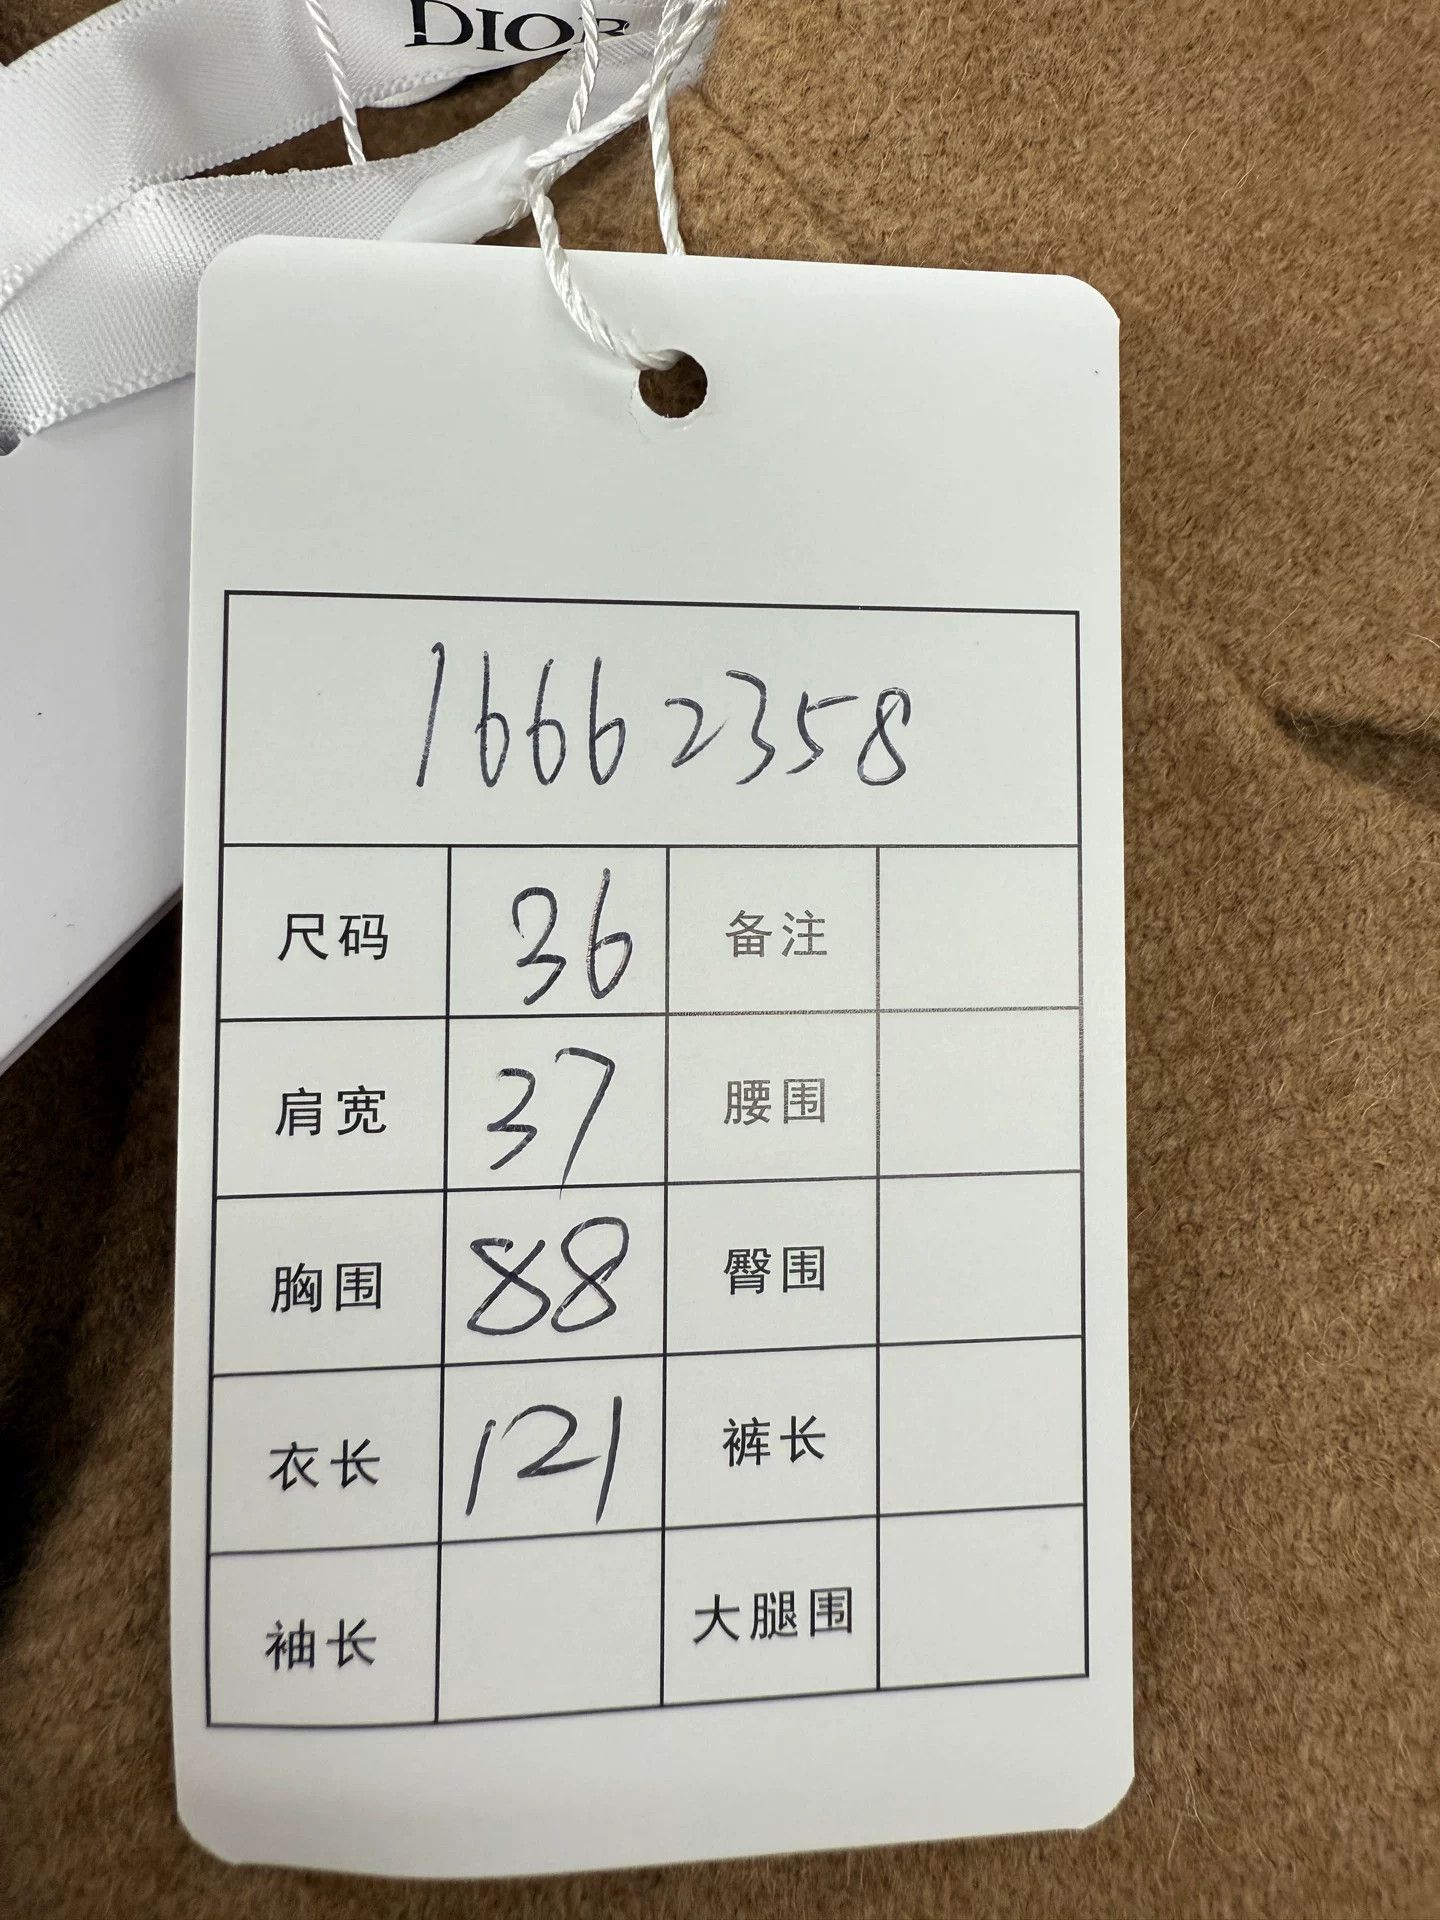 DIOR
16662358
尺码 36 备注
肩宽 37 腰围
胸围 88 臀围
衣长 121 裤长
袖长 大腿围